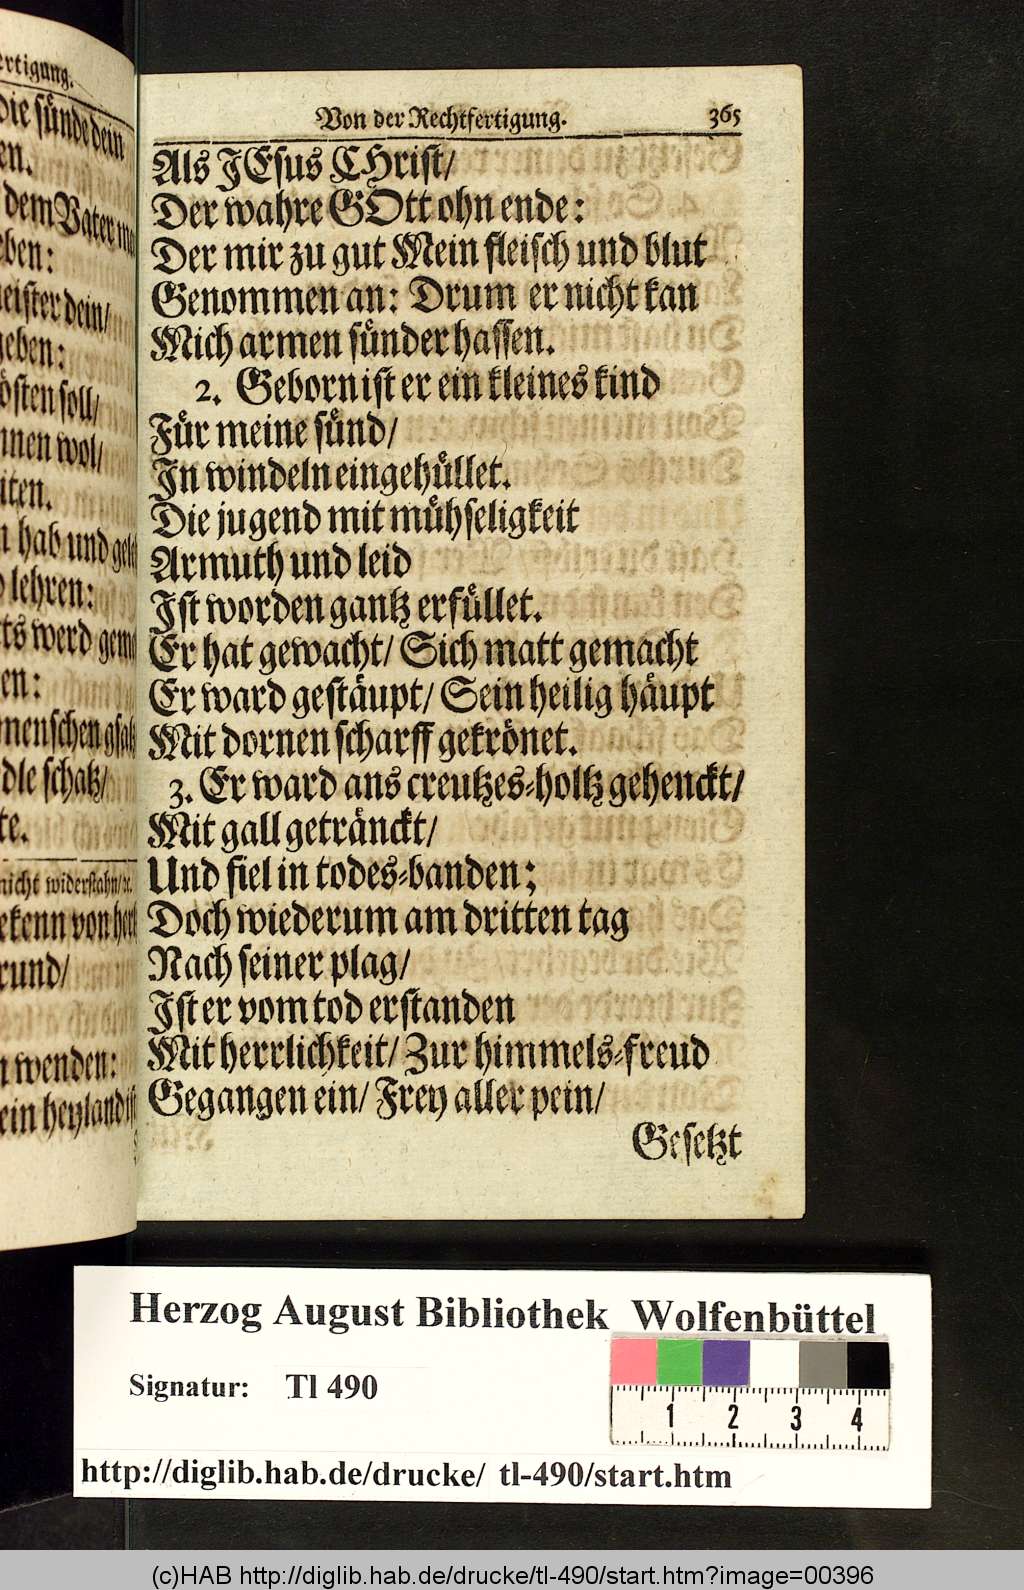 ertigung.
die sünde dein
en.
dem Vater
ben:
eister dein/
geben:
östen soll/
nnen wol/
iten.
hab und
lehren:
ts werd
en:
menschen gsatz
dle schatz/
te.
nicht widerstahn/ꝛc.
ekenn von
rund/
wenden:
ein heyland ist
Von der Rechtfertigung. 365
Als JEsus CHrist/
Der wahre GOtt ohn ende:
Der mir zu gut Mein fleisch und blut
Genommen an: Drum er nicht kan
Mich armen sünder hassen.
2. Geborn ist er ein kleines kind
Für meine sünd/
In windeln eingehüllet.
Die jugend mit mühseligkeit
Armuth und leid
Ist worden gantz erfüllet.
Er hat gewacht/ Sich matt gemacht
Er ward gestäupt/ Sein heilig häupt
Mit dornen scharff gekrönet.
3. Er ward ans creutzes-holtz gehenckt/
Mit gall getränckt/
Und fiel in todes-banden;
Doch wiederum am dritten tag
Nach seiner plag/
Ist er vom tod erstanden
Mit herrlichkeit/ Zur himmels-freud
Gegangen ein/ Frey aller pein/
Gesetzt
Herzog August Bibliothek Wolfenbüttel
Signatur: Tl 490
1 2 3 4
http://diglib.hab.de/drucke/ tl-490/start.htm
(c)HAB http://diglib.hab.de/drucke/tl-490/start.htm?image=00396